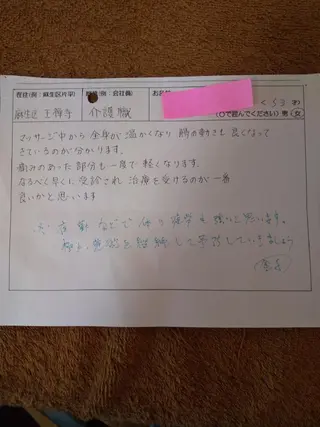 在住(例:麻生区片平)
職業(例:会社員)
お名前
麻生区 王禅寺
介護職
53 才)
(○で囲んでください)男・女
マッサージ中から 全身が 温かくなり 腸の動きも 良くなって
きているのが分かります。
痛みのあった 部分も 一度で 軽くなります。
なるべく早くに 受診され 治療を受けるのが 一番
良いかと思います
夜勤などで 体の疲労も 強いと思います。
施術を継続して
いきましょう